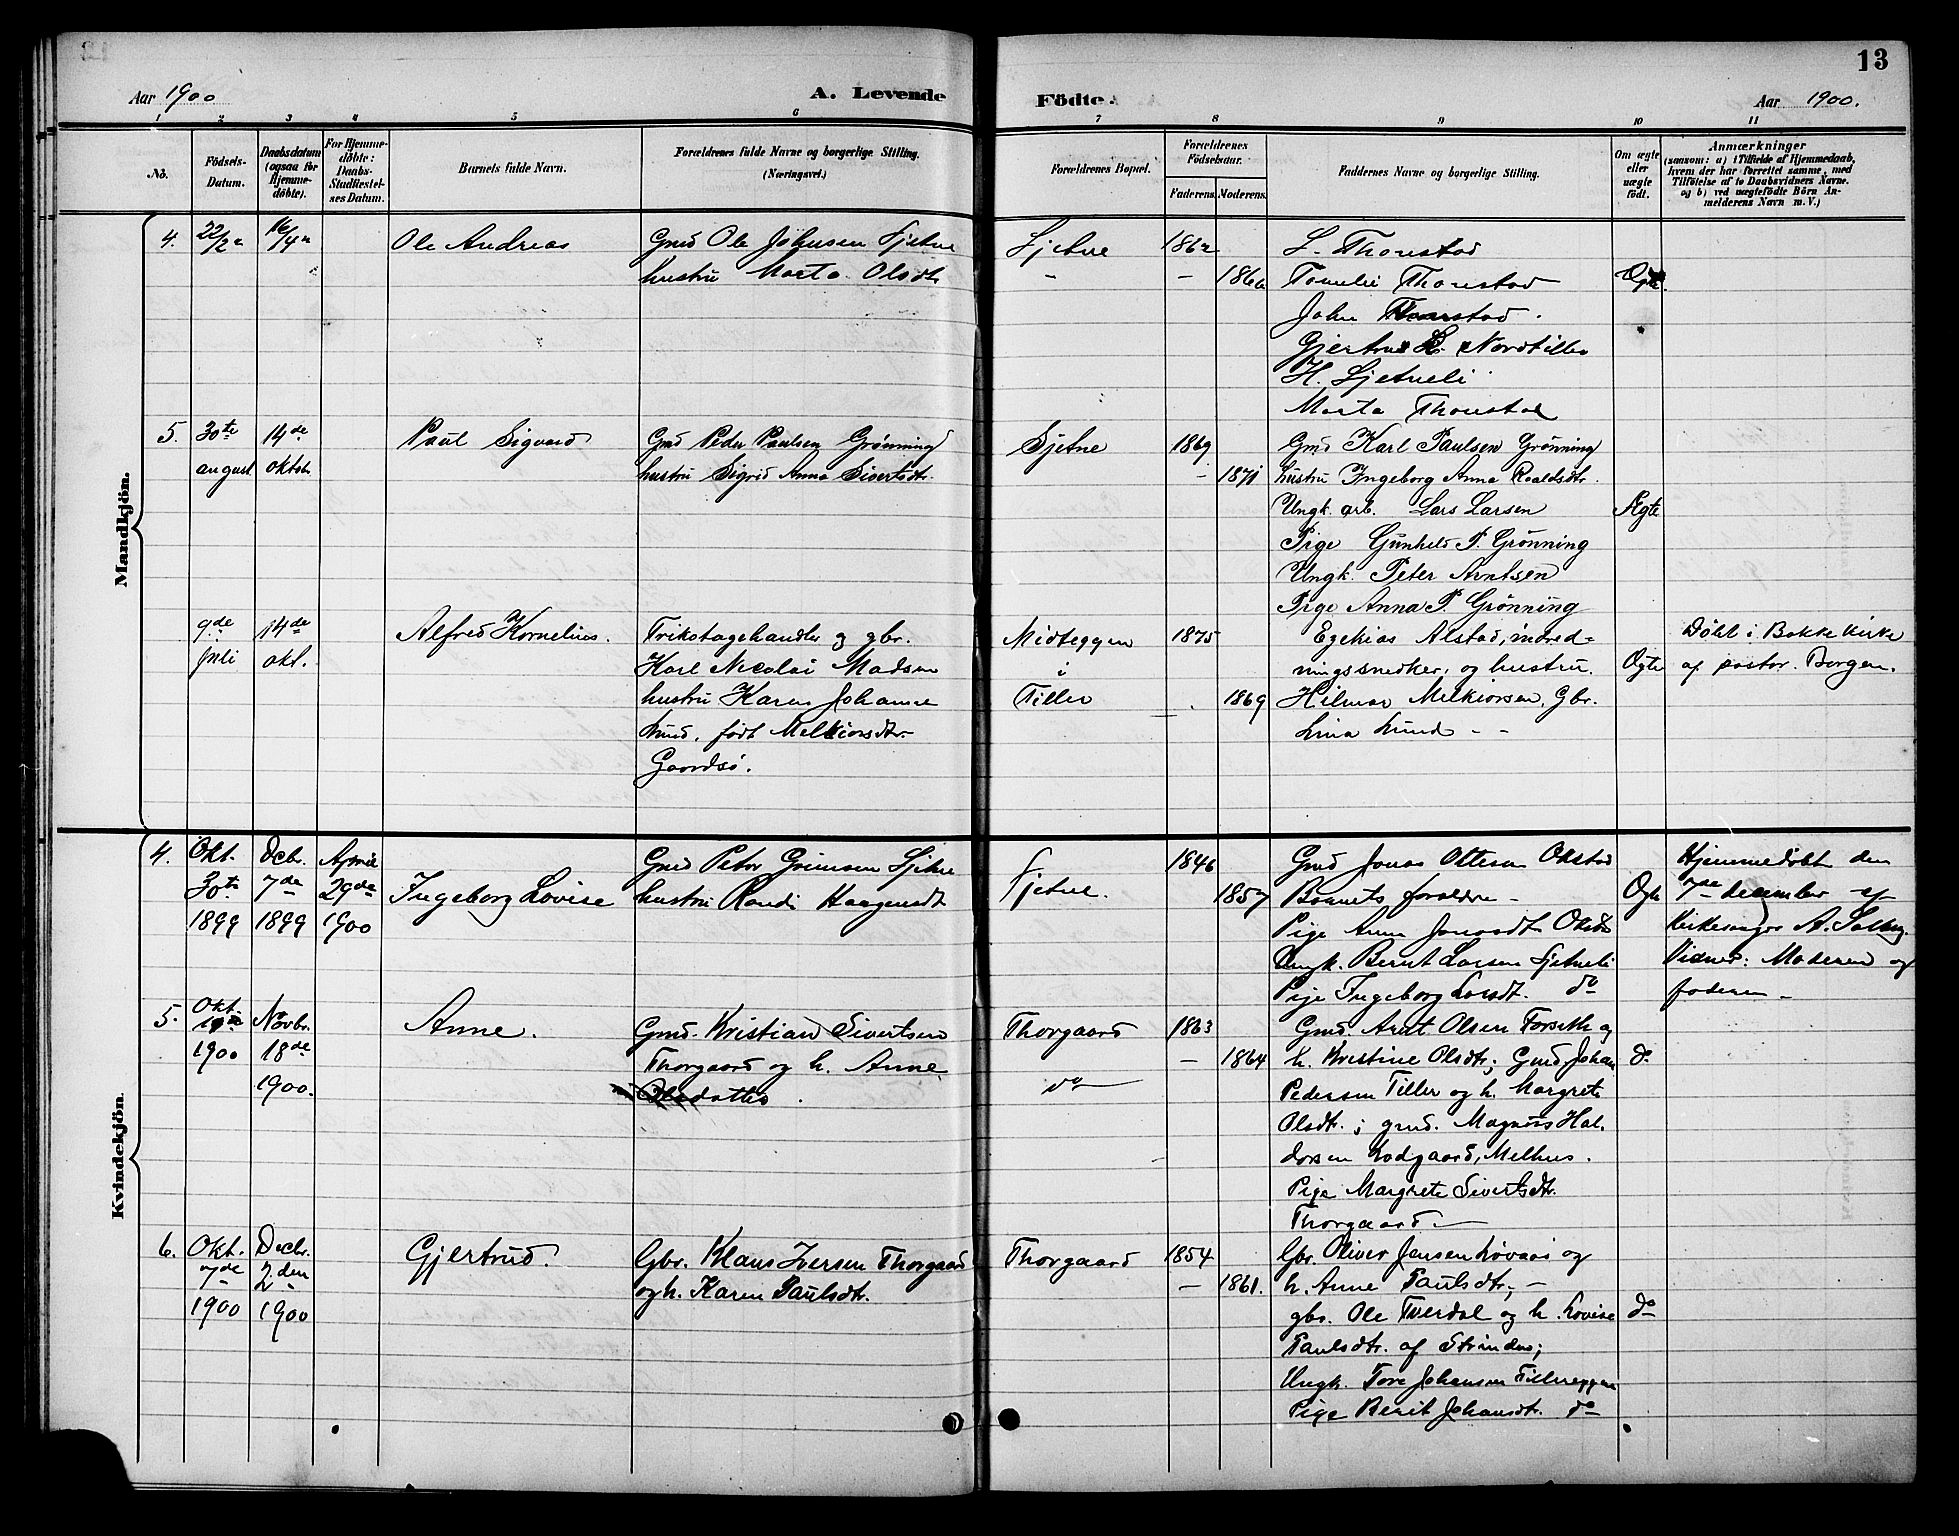 13
Aar 1900
A. Levende
Födte.
Aar 1900.
1 2 3 4 5 6 7 8 9 10 11
No.
Födsels-
Datum.
Daabsdatum
(ogsaa for
Hjemme-
döbte).
For Hjemme-
döbte:
Daabs-
Stadfæstel-
ses Datum.
Barnets fulde Navn.
Forældrenes fulde Navne og borgerlige Stilling.
(Næringsvei.)
Forældrenes Bopæl.
Forældrenes
Födselsaar.
Faderens. Moderens.
Faddernes Navne og borgerlige Stilling.
Om ægte
eller
uægte
födt.
Anmærkninger
(saasom: a) i Tilfælde af Hjemmedaab,
hvem der har forrettet samme, med
Tilföielse af to Daabsvidners Navne.
og b) ved uægtefödte Börn An-
melderens Navn m. V.)
Mandkjön.
4.
22/2
Ole Andreas
Gmd Ole Johnsen Sjetne
hustru Marta Olsdtr
Sjetne
1862
1866
L. Thonstad
Thonstad
John Thonstad.
Gjertrud L. Nordtiller
H. Sjetneli
Marta Thonstad
Ægte
5.
30te
august
14de
oktob.
Paul Sigvard
Gmd Peder Paulsen Grønning
hustru Sigrid Anna Sivertsdtr.
Sjetne
1869
1871
Gmd Karl Paulsen Grønning
hustru Ingeborg Anna Roaldsdtr.
Ungk. arb. Lars Larsen
Pige Gunhild P. Grønning
Ungk. Peter Arntsen
Pige Anna P. Grønning
Ægte
9de
Juli
14de
okt.
Alfred Kornelius.
Trikotagehandler og gbr.
Karl Nicolai Madsen
hustru Karen Johanne
Lund, født Melkiorsdtr.
Gaardsø.
Midteggen
i
Tiller
1875
1869
Ezekias Alstad, indred-
ningssnedker, og hustru.
Hilmar Melkiorsen, Gbr.
Lina Lund - -
Ægte
Døbt i Bakke Kirke
af pastor Borgen.
Kvindekjön.
4.
Okt.
30te
1899
Decbr.
7de
1899
April
29de
1900
Ingeborg Lovise
Gmd Peter Grimsen Sjetne
hustru Randi Haagensdt
Sjetne.
1846
1857
Gmd Jonas Ottesen Okstad
Barnets forældre -
Pige Anna Jonasdt Okstad
Ungk. Bernt Larsen Sjetneli
Pige Ingeborg Larsdt. do
Ægte
Hjemmedøbt den
7de december af
Kirkesanger A. Solberg.
Vidner: Moderen og
faderen -
5.
Okt.
19de
1900
Novbr.
18de
1900.
Anne.
Gmd. Kristian Sivertsen
Thorgaard og h. Anne
Olsdatter.
Thorgaard
do
1863
1864
Gmd. Arnt Olsen Forseth og
h. Kristine Olsdtr.; Gmd Johan
Pedersen Tiller og h. Margrete
Olsdtr.; gmd. Magnus Hal-
dorsen Lodgaard, Melhus.
Pige Margrete Sivertsdtr.
Thorgaard -
do
6.
Okt.
7de
1900
Decbr.
2den
1900
Gjertrud.
Gbr. Klaus Iversen Thorgaard
og h. Karen Paulsdtr.
Thorgaard
1854
1861.
Gbr. Oliver Jensen Løvaas og
h. Anne Paulsdtr; -
gbr. Ole Tverdal og h. Lovise
Paulsdtr. af Strinden;
Ungk. Tore Johansen Tillereggen
Pige Berit Johansdtr. do
do